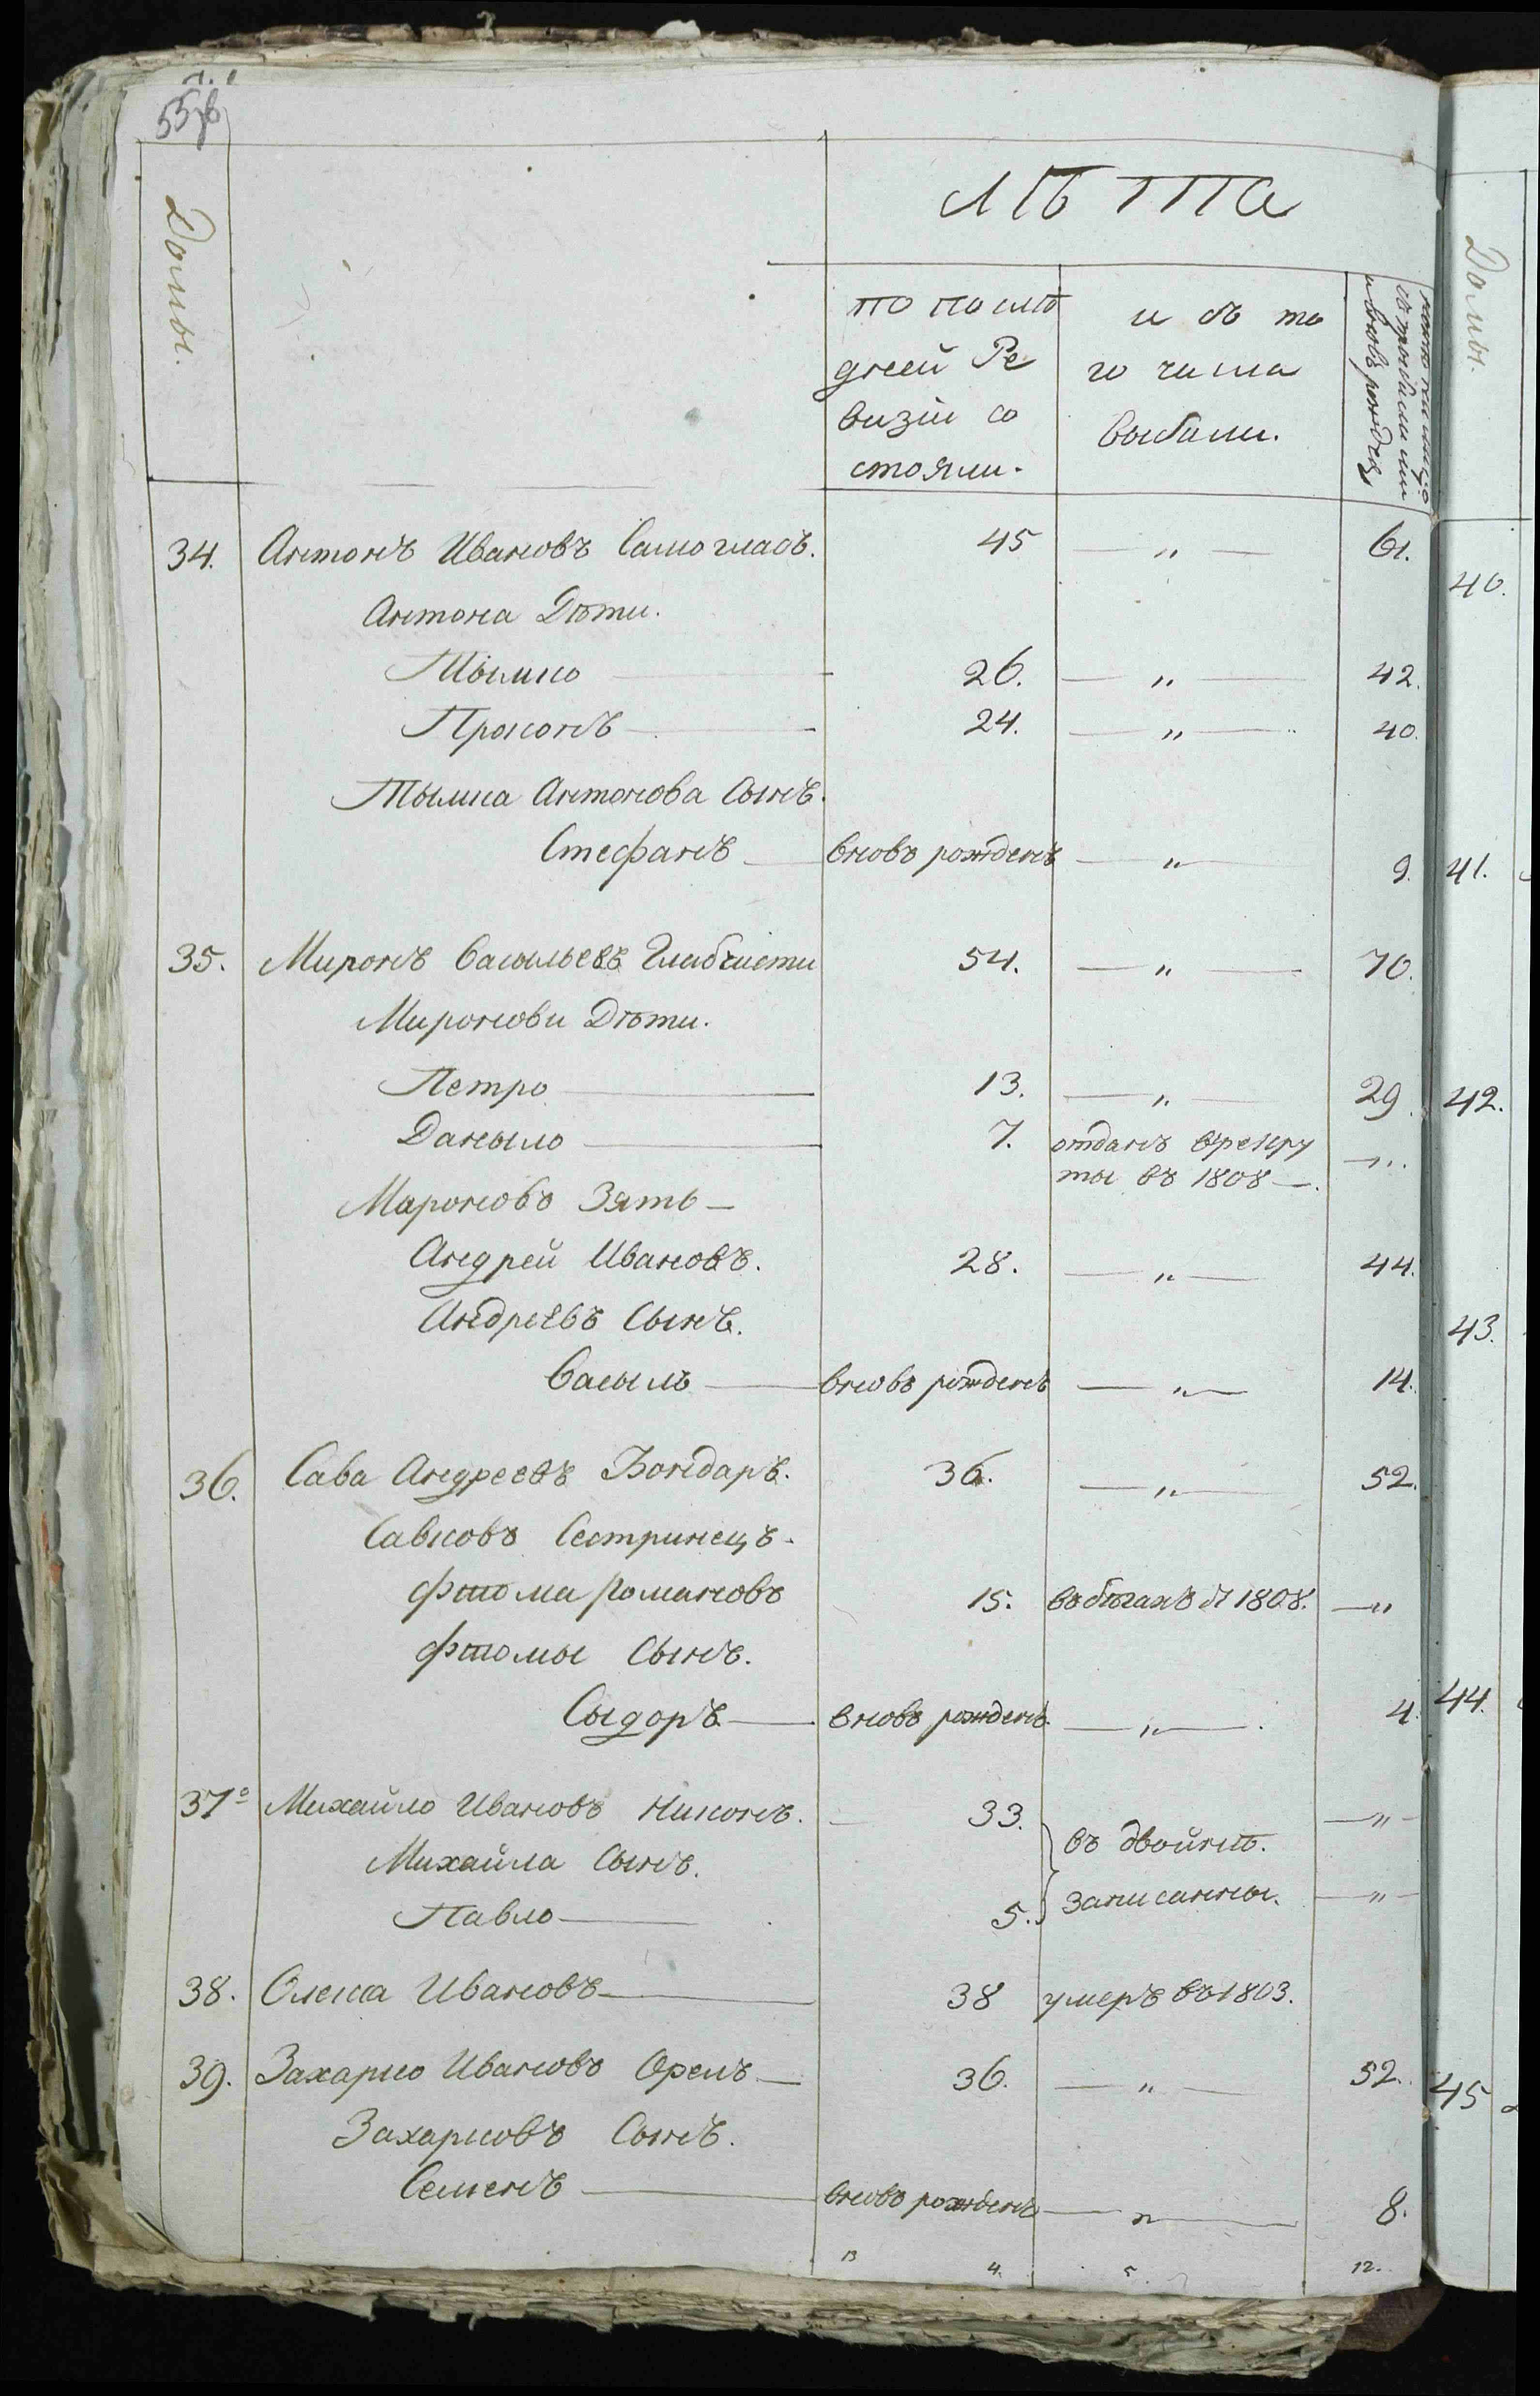 557
Домы.
ЛѢТА
по послѣ
дней Ре
визіи со
стояли.
изъ то
го числа
выбыли.
и вновь рожден
34. Антонъ Ивановъ Самогласъ. 45 — „ — 61.
Антона Дѣти.
Тымко — 26. — „ — 42.
Прокопъ — 24. — „ — 40.
Тымка Антонова Сынъ.
Стефанъ — вновь рожденъ — „ — 9.
35. Миронъ Васыльевъ 54. — „ — 70.
Миронови Дѣти.
Петро — 13. — „ — 29.
Даныло — 7. отданъ врекру — „
ты въ 1808 —.
Мароновъ Зять —
Андрей Ивановъ. 28. — „ — 44.
Андреевъ Сынъ.
Васыль — вновь рожденъ — „ — 14.
36. Сава Андреевъ Бондаръ. 36. — „ — 52.
Савковъ Сестринецъ.
Фтома Романовъ 15. въ бѣгахъ 1808. — „
Фтомы Сынъ.
Сыдоръ — вновь рожденъ — „ — 4.
37. Михайло Ивановъ Никонъ. 33. — „ —
въ двойнѣ.
Михайла Сынъ.
записанны. — „ —
Павло — 5.
38. Олекса Ивановъ — 38 умеръ въ 1803.
39. Захарко Ивановъ Орелъ — 36. — „ — 52.
Захарковъ Сынъ.
Семенъ — вновь рожденъ — „ — 8.
13 4. 5. 12.
Домы.
40.
41.
42.
43.
44.
45